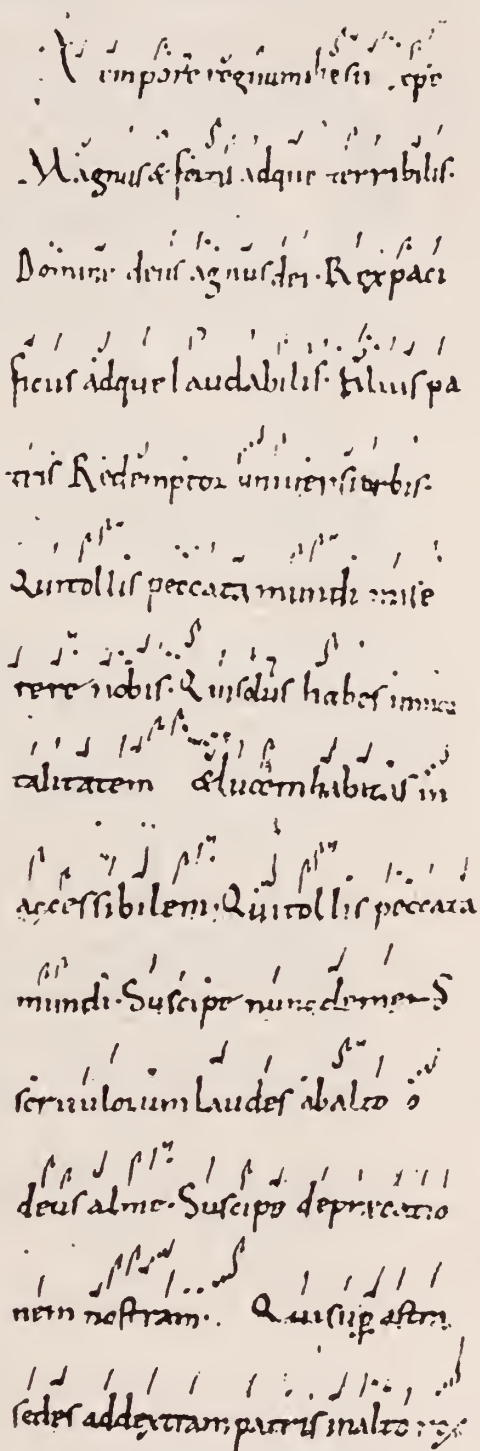 Magnus & fortis adque terribilis.
Domine deus agnus dei. Rex paci
ficus adque laudabilis. filius pa
tris Redemptor universi orbis.
Qui tollis peccata mundi mise
rere nobis. Qui solus habes inmor
talitatem & lucem habitas in
accessibilem. Qui tollis peccata
mundi. Suscipe nunc clemens
servulorum laudes ab alto o
deus alme. Suscipe deprecatio
nem nostram. Qui sup astra
sedes ad dextram patris in alto